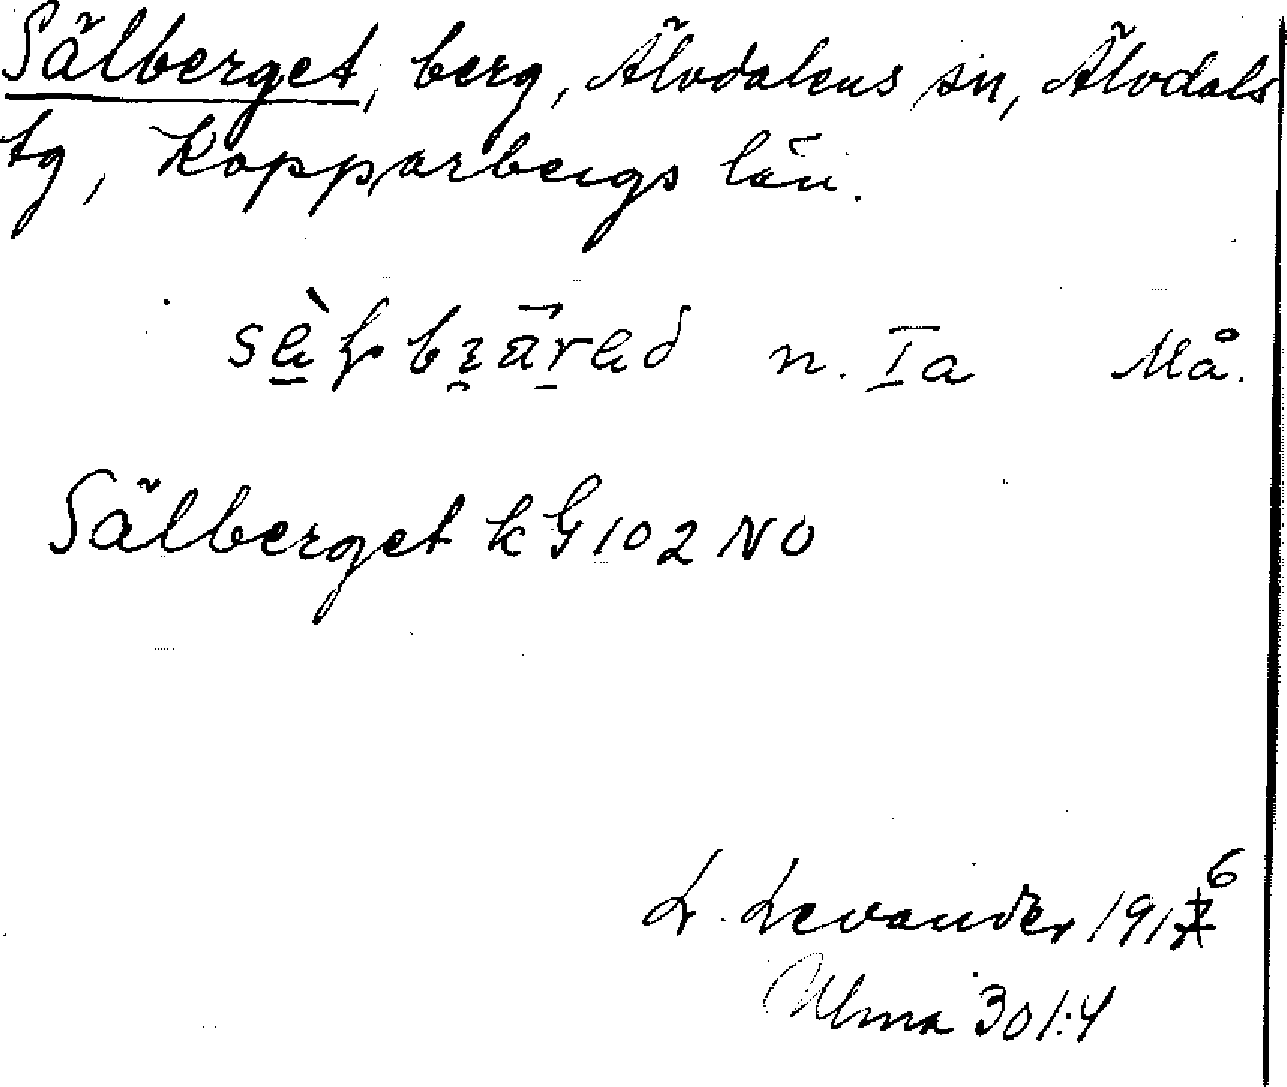 Sälberget, berg, Älvdalens sn, Älvdals
tg, Kopparbergs län.
n. Ia Må.
Sälberget k G 102 NO
L. Levander 1916
Ulma 301:4